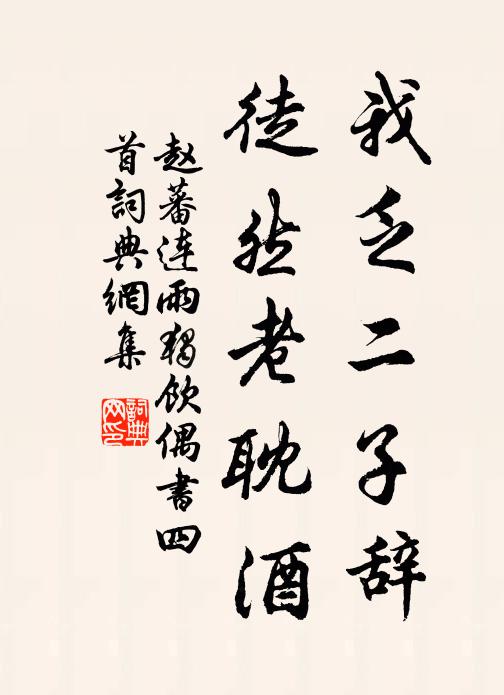 我乏二子辞
徒然老耽酒
赵蕃连雨独饮偶书四
首词典网集
詞典
网印